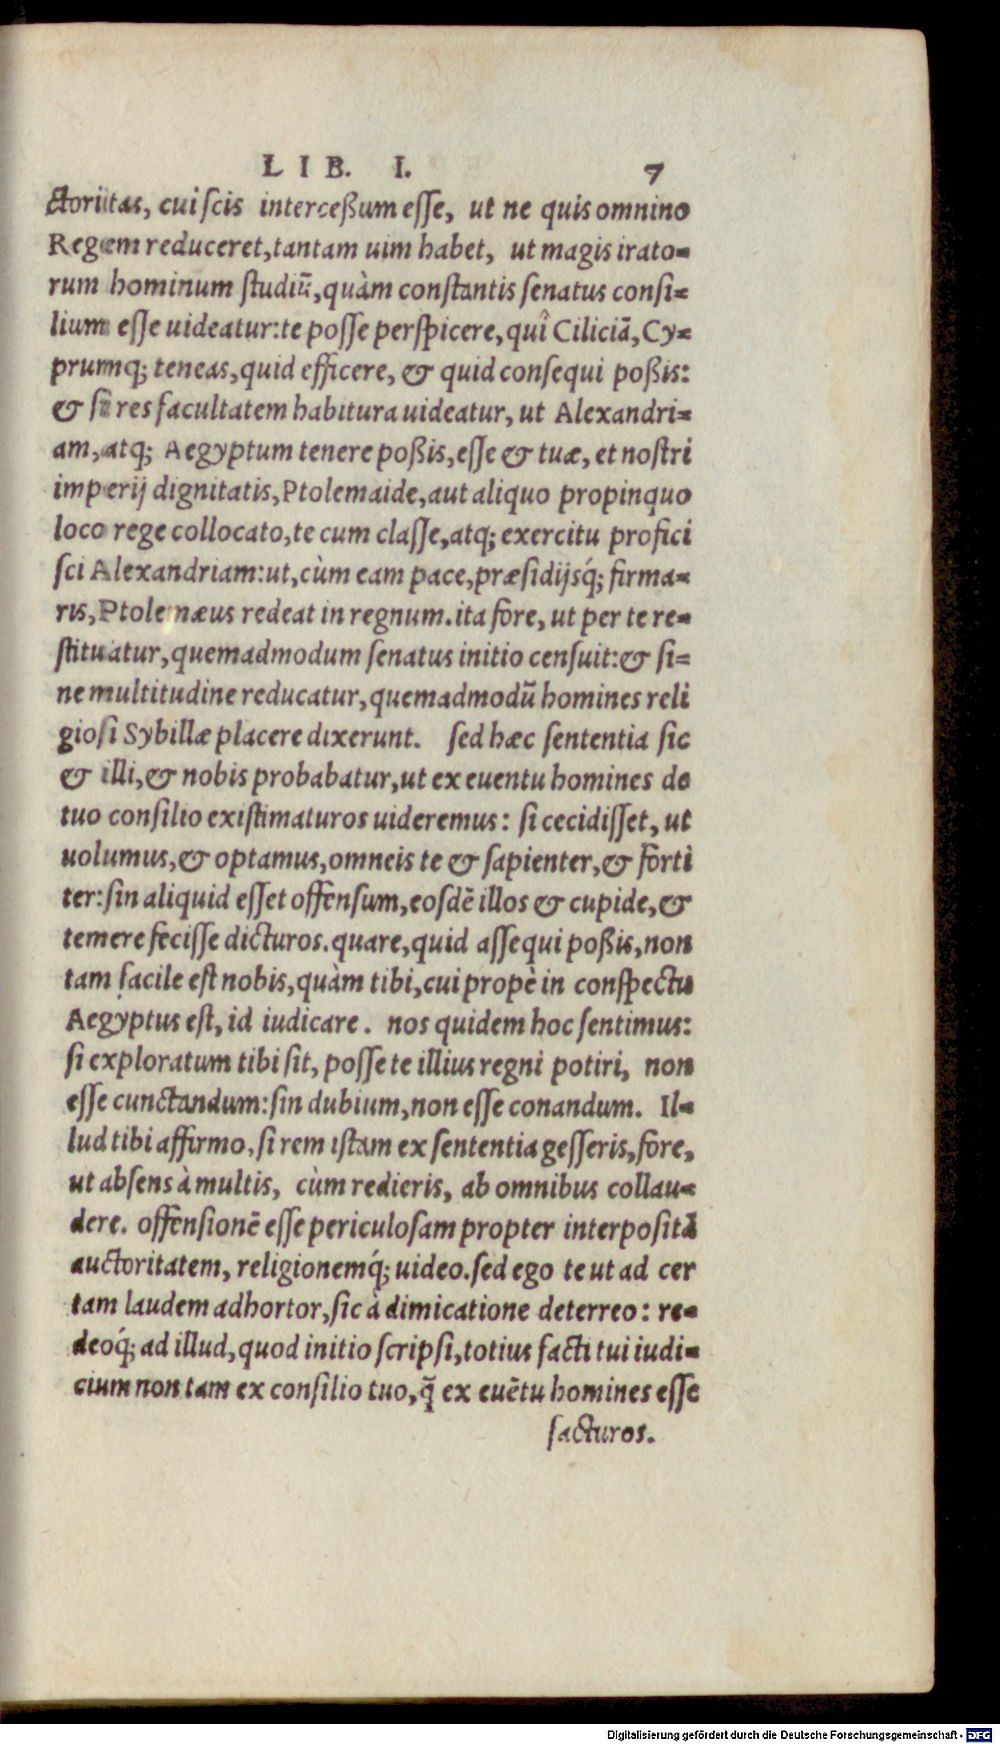 LIB. I. 7
ctoritas, cui scis interceßum esse, ut ne quis omnino
Regem reduceret, tantam uim habet, ut magis irato-
rum hominum studiũ, quàm constantis senatus consi-
lium esse uideatur: te posse perspicere, qui Ciliciã, Cy-
prumq; teneas, quid efficere, & quid consequi poßis:
& si res facultatem habitura uideatur, ut Alexandri-
am, atq; Aegyptum tenere poßis, esse & tuæ, et nostri
imperij dignitatis, Ptolemaide, aut aliquo propinquo
loco rege collocato, te cum classe, atq; exercitu profici
sci Alexandriam: ut, cùm eam pace, præsidijsq́; firma-
ris, Ptolemæus redeat in regnum. ita fore, ut per te re-
stituatur, quemadmodum senatus initio censuit: & si-
ne multitudine reducatur, quemadmodũ homines reli
giosi Sybillæ placere dixerunt. sed hæc sententia sic
& illi, & nobis probabatur, ut ex euentu homines de
tuo consilio existimaturos uideremus: si cecidisset, ut
uolumus, & optamus, omneis te & sapienter, & forti
ter: sin aliquid esset offensum, eosdẽ illos & cupide, &
temere fecisse dicturos. quare, quid assequi poßis, non
tam facile est nobis, quàm tibi, cui propè in conspectu
Aegyptus est, id iudicare. nos quidem hoc sentimus:
si exploratum tibi sit, posse te illius regni potiri, non
esse cunctandum: sin dubium, non esse conandum. Il-
lud tibi affirmo, si rem istam ex sententia gesseris, fore,
ut absens à multis, cùm redieris, ab omnibus collau-
dere. offensionẽ esse periculosam propter interpositã
auctoritatem, religionemq́; uideo. sed ego te ut ad cer
tam laudem adhortor, sic à dimicatione deterreo: re-
deoq́; ad illud, quod initio scripsi, totius facti tui iudi-
cium non tam ex consilio tuo, q̃ ex euẽtu homines esse
facturos.
Digitalisierung gefördert durch die Deutsche Forschungsgemeinschaft - DFG